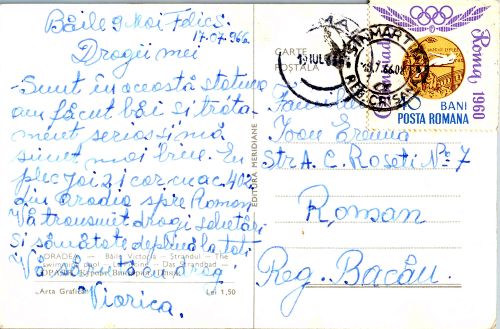 Băile 9 Mai Felics.
17.07.966
Dragii mei
-Sunt în această stațiune
am făcut băi și trata
ment serios și mă
simt mai bine. En
plec joi 21 cor. cu ac. 402
din Oradia spre Roman
Vă transmit dragi salutări
și sănătate deplină la toți
Vă sărut cu drag
Viorica.
ORADEA — Băile Victoria — Ștrandul — The
swimming — Das Strandbad —
"Arta Grafică"
Lei 1,50
EDITURA MERIDIANE
CARTE
POȘTALĂ
IUL
SINMARTIN
REG. CRIȘANA
Roma, 1960
10 BANI
POSTA ROMANA
Familia
Ioan
Str A. C. Roseti No 7
Roman
Reg. Bacău.